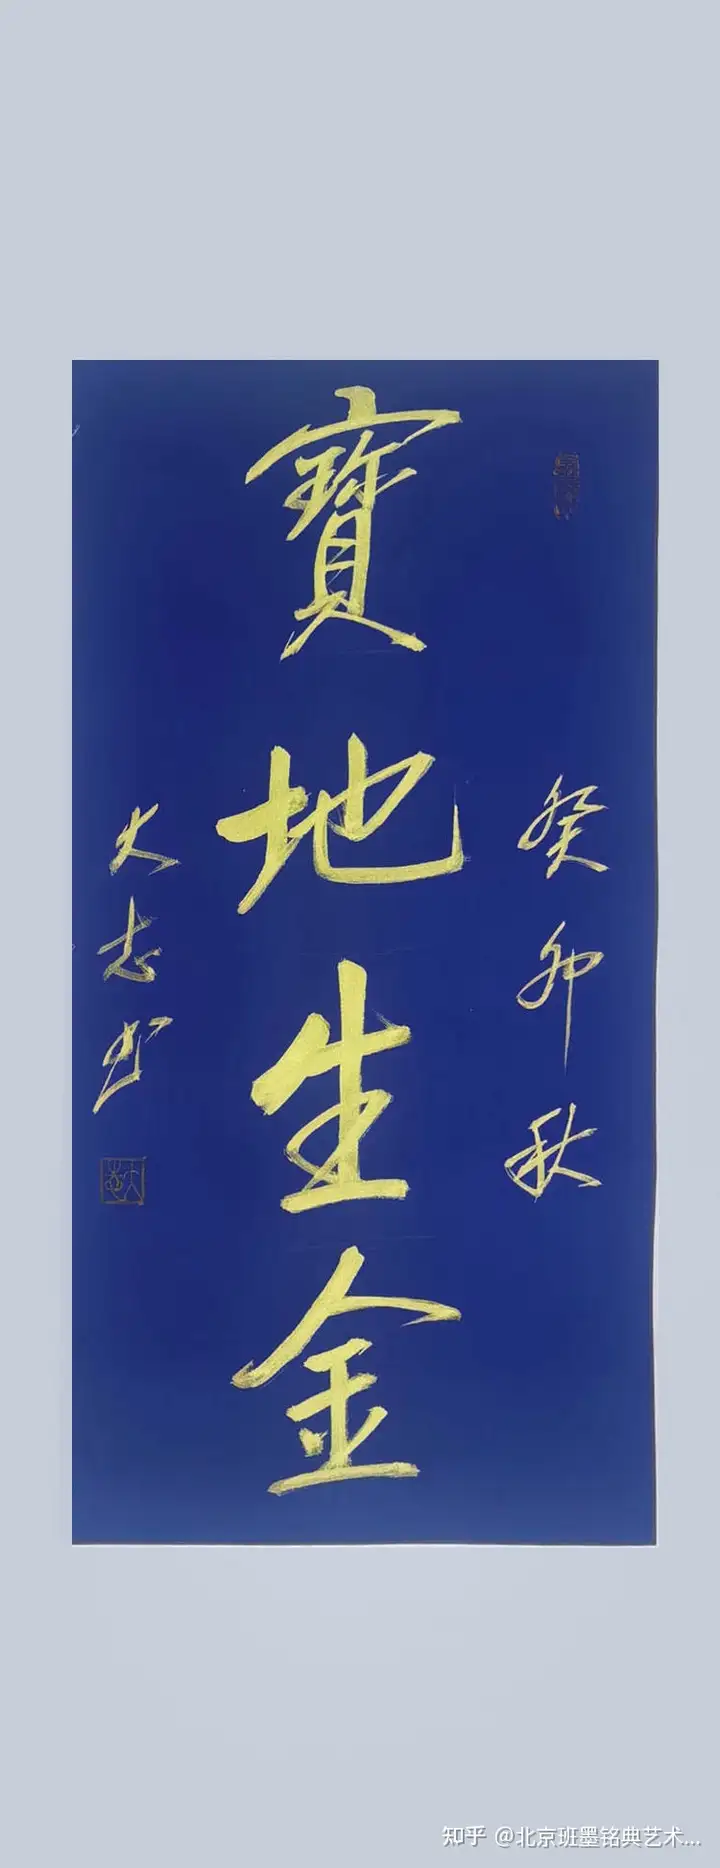 癸卯秋
寶地生金
大志书
知乎 @北京班墨铭典艺术...